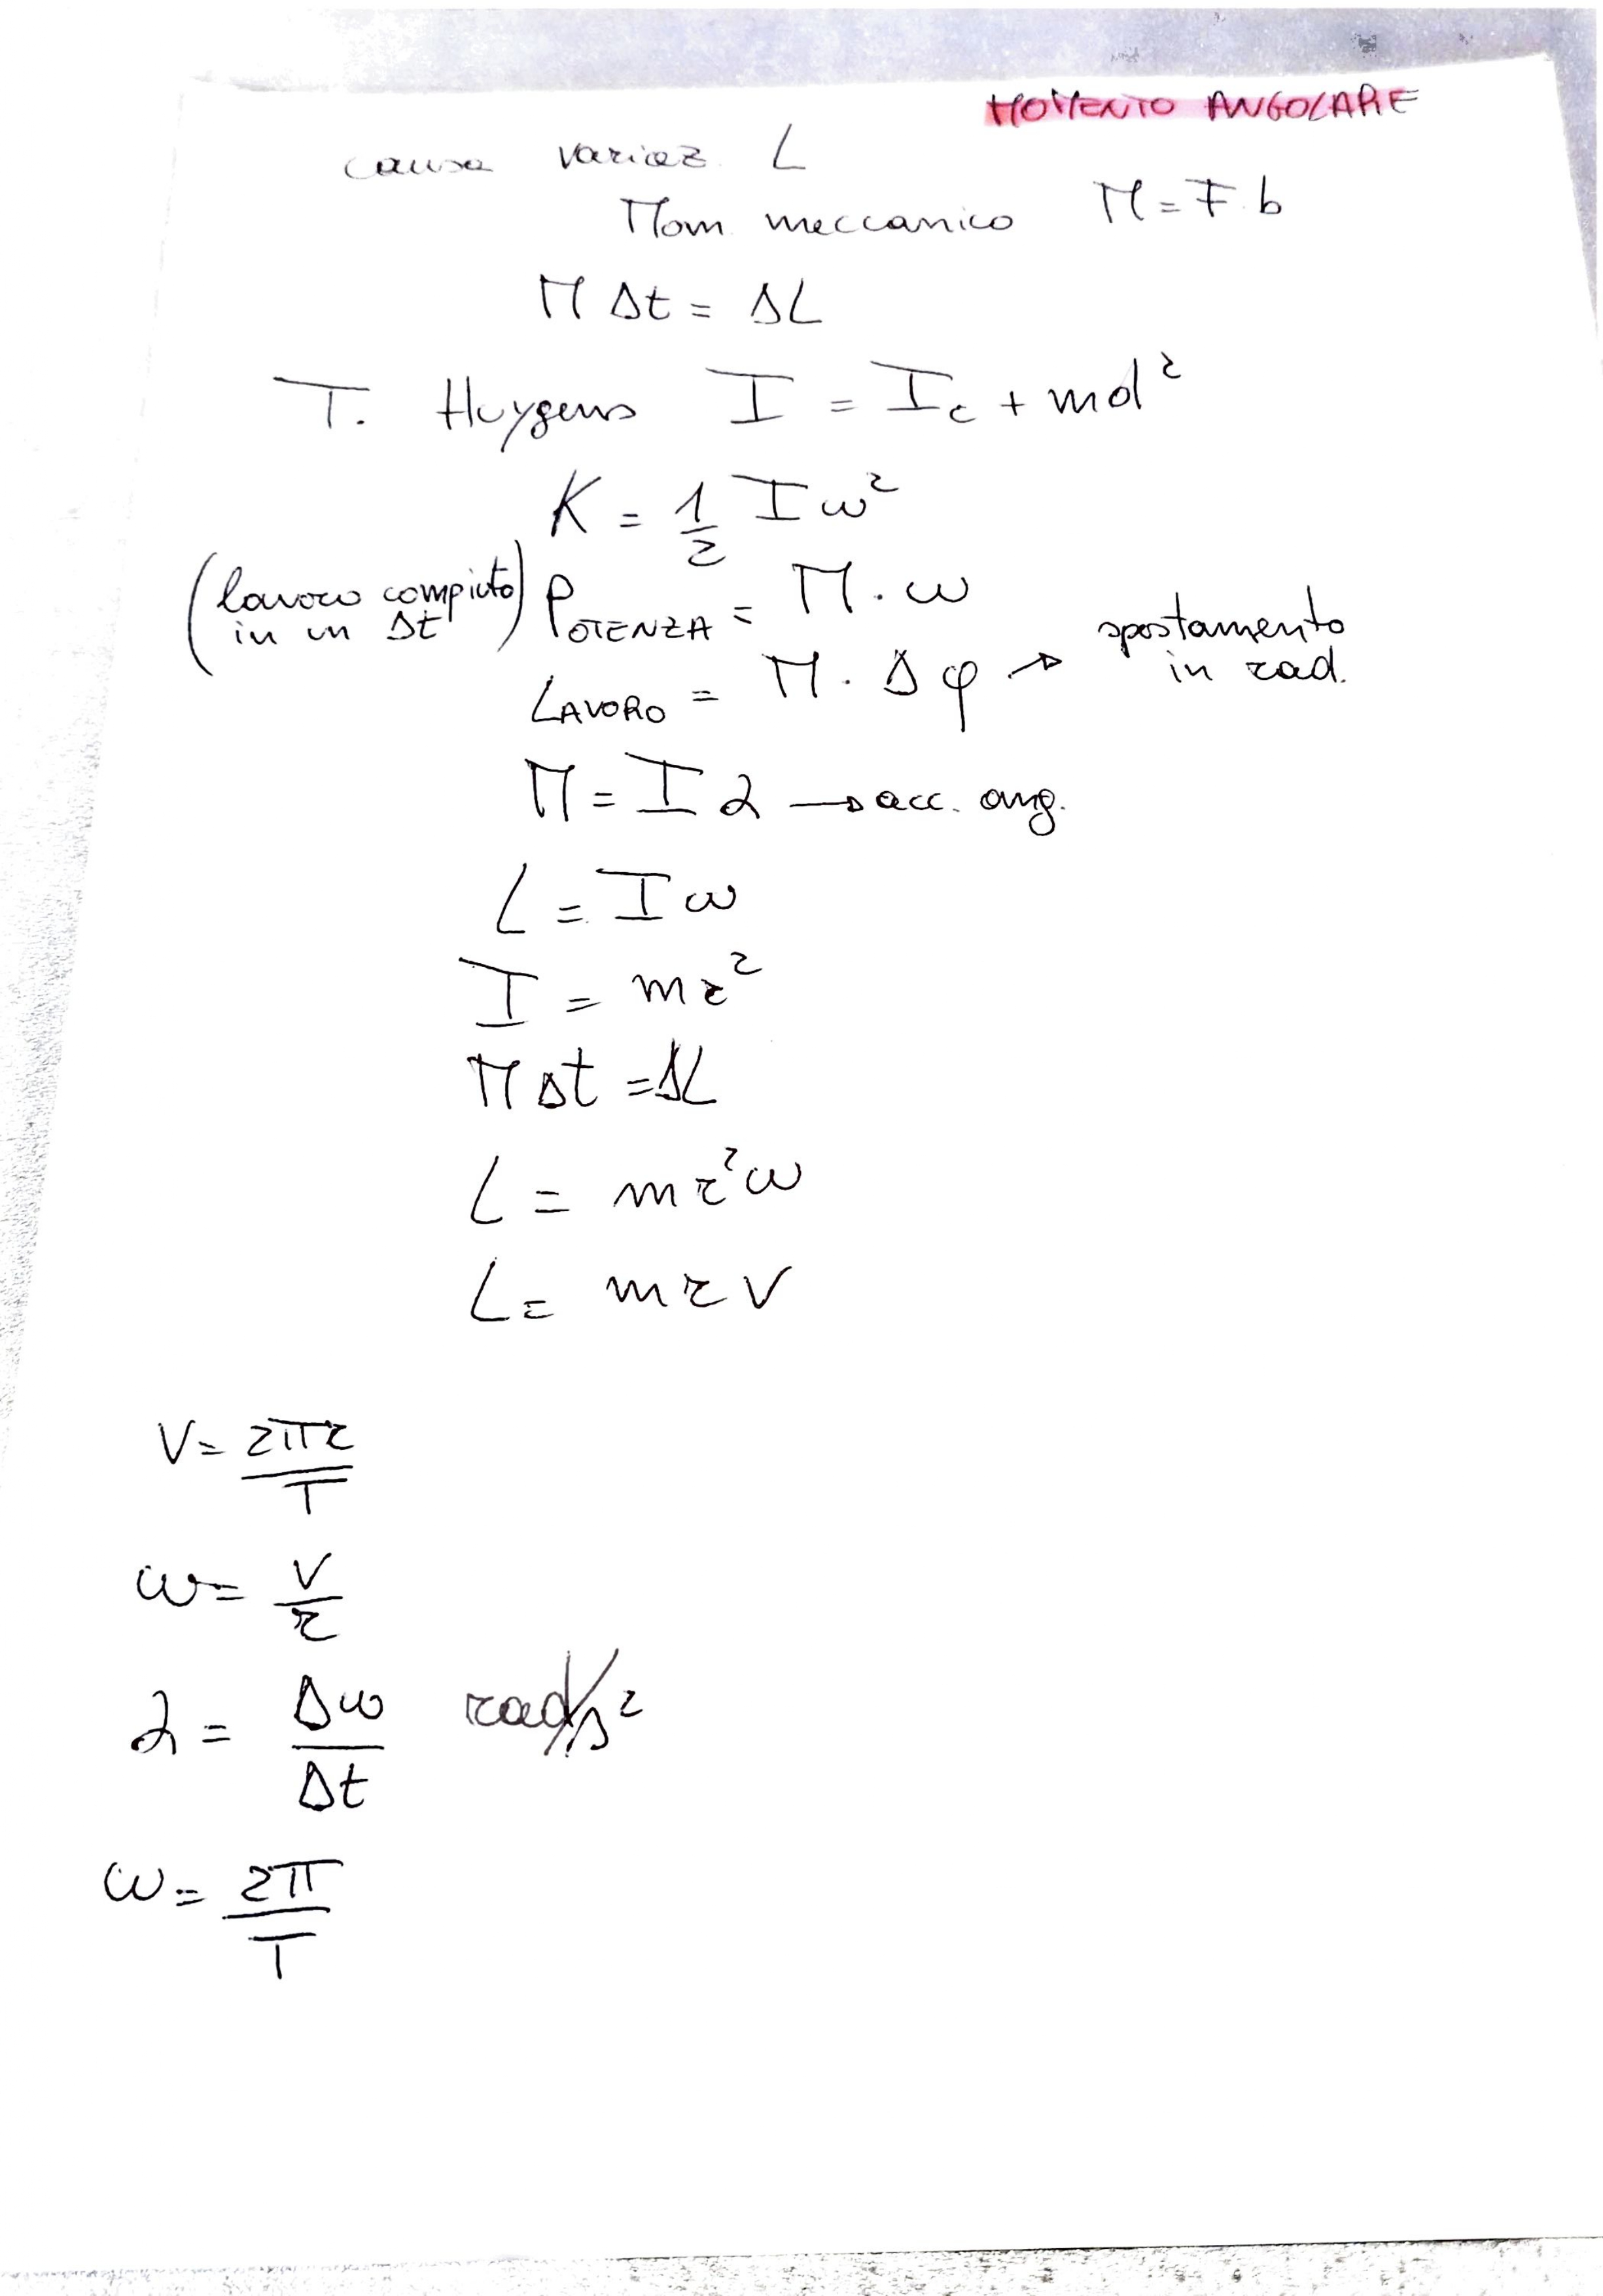 MOMENTO ANGOLARE
causa variaz. L
Mom. meccanico M = F·b
M Δt = ΔL
T. Huygens I = I_c + md²
K = 1/2 I ω²
(lavoro compiuto in un Δt) POTENZA = M · ω
LAVORO = M · Δφ → spostamento in rad.
M = I α → acc. ang.
L = I ω
I = mr²
M Δt = ΔL
L = mr²ω
L = mrv
v = 2πr/T
ω = v/r
α = Δω/Δt rad/s²
ω = 2π/T